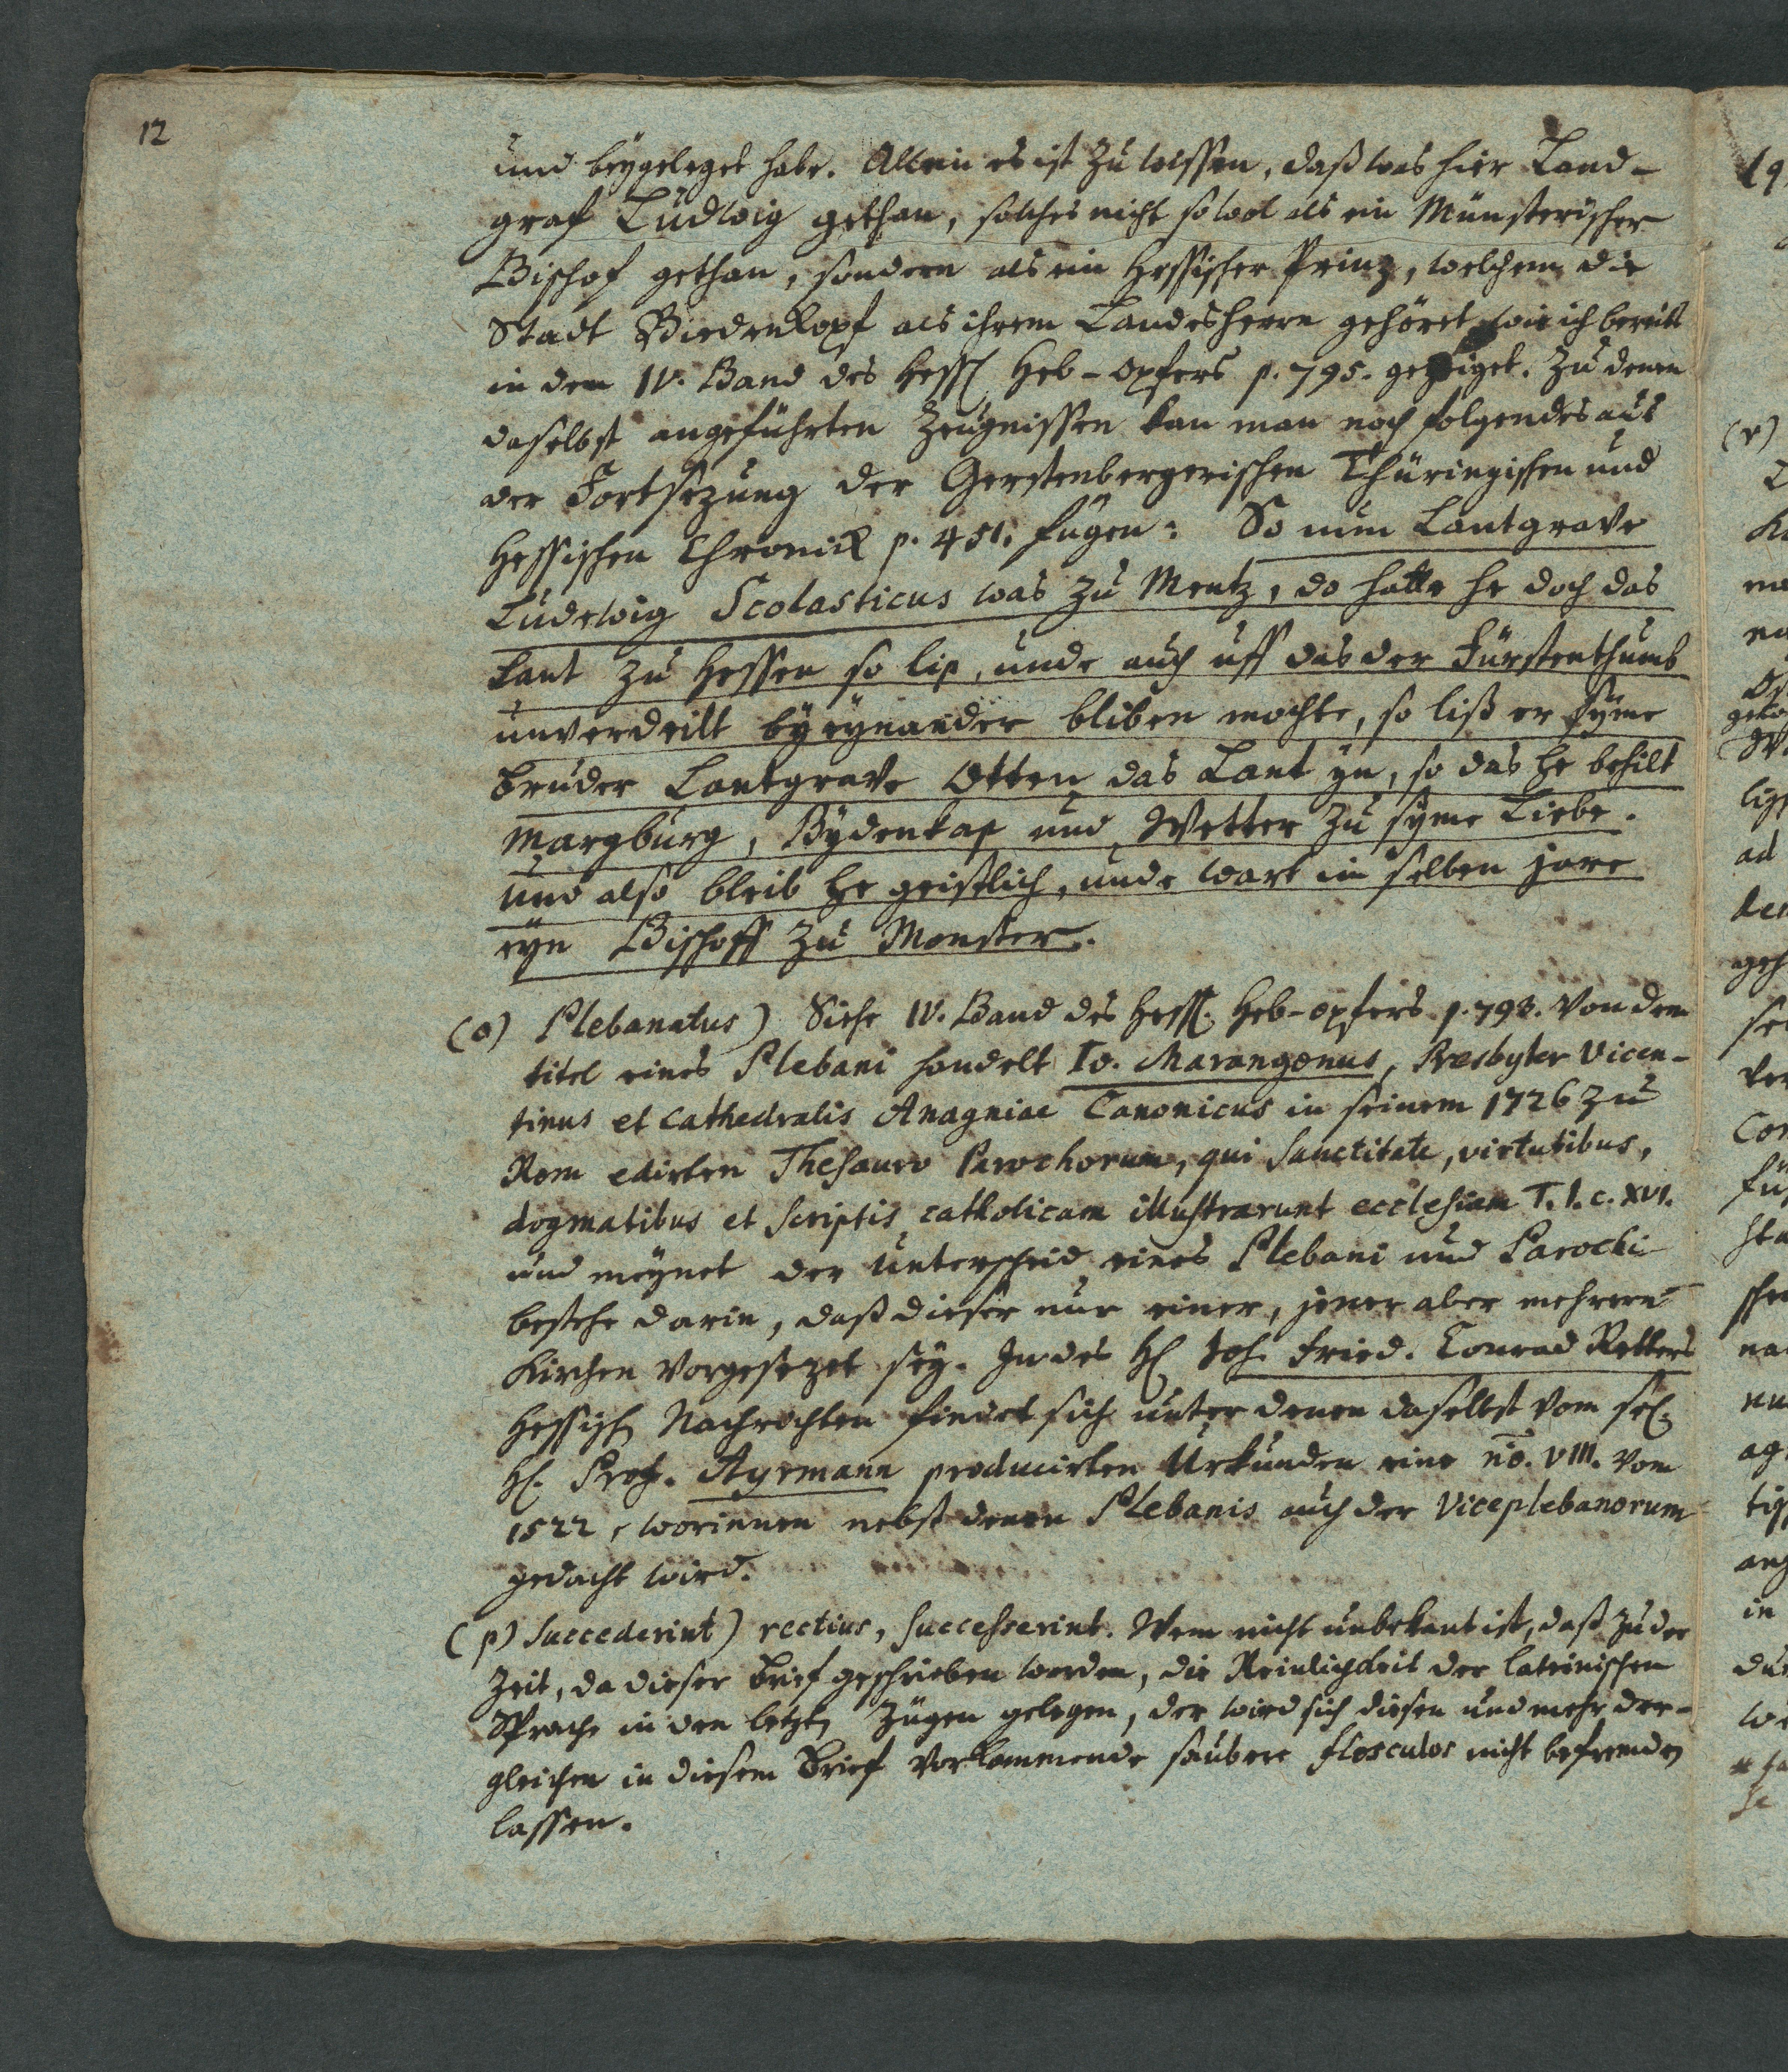 12
und beygeleget habe. Allein es ist zu wissen, daß was hier Land-
graf Ludwig gethan, solches nicht so wol als ein Münsterischer
Bischof gethan, sondern als ein Hessischer Prinz, welchem die
Stadt Biedenkopf als ihrem Landesherrn gehöret, wie ich bereits
in dem IV. Band des Hess. Heb-Opfers p. 795. gezeiget. Zu denen
daselbst angeführten Zeugnissen kan man noch folgendes aus
der Fortsezung der Gerstenbergerischen Thüringischen und
Hessischen Chronick p. 451. fügen: So nun Lantgrave
Ludewig Scolasticus was zu Mentz, do hatte he doch das
Lant zu Hessen so lip, unde auch uff das der Fürstenthumb
unverdeilt by eynander bliben mochte, so liß er syme
Bruder Lantgrave Otten das Lant yn, so das he behilt
Margburg, Bydenkap und Wetter zu syme Liebe.
Und also bleib he geistlich, unde wart im selben jare
eyn Bischoff zu Monster.
(o) Plebanatus) Siehe IV. Band des Hess. Heb-Opfers p. 798. Von dem
titel eines Plebani handelt Io. Marangonus, Presbyter Vicen-
tinus et Cathedralis Anagniae Canonicus in seinem 1726 zu
Rom edirten Thesauro Parochorum, qui sanctitate, virtutibus,
dogmatibus et scriptis catholicam illustrarunt ecclesiam T. I. c. XVI.
und meynet der Unterscheid eines Plebani und Parochi
bestehe darin, daß dieser nur einer, jener aber mehrern
Kirchen vorgesezet sey. In des H. Joh. Fried. Conrad Retters
Hessisch. Nachrichten findet sich unter denen daselbst vom sel.
H. Prof. Ayrmann producirten Urkunden eine no. VIII. vom
1522, worinnen nebst denen Plebanis auch der Viceplebanorum
gedacht wird.
(p) succederint) rectius, successerint. Wem nicht unbekant ist, daß zu der
Zeit, da dieser Brief geschrieben worden, die Reinligkeit der lateinischen
Sprache in den letzten Zügen gelegen, der wird sich diesen und mehr der-
gleichen in diesem Brief vorkommende saubere flosculos nicht befremden
lassen.